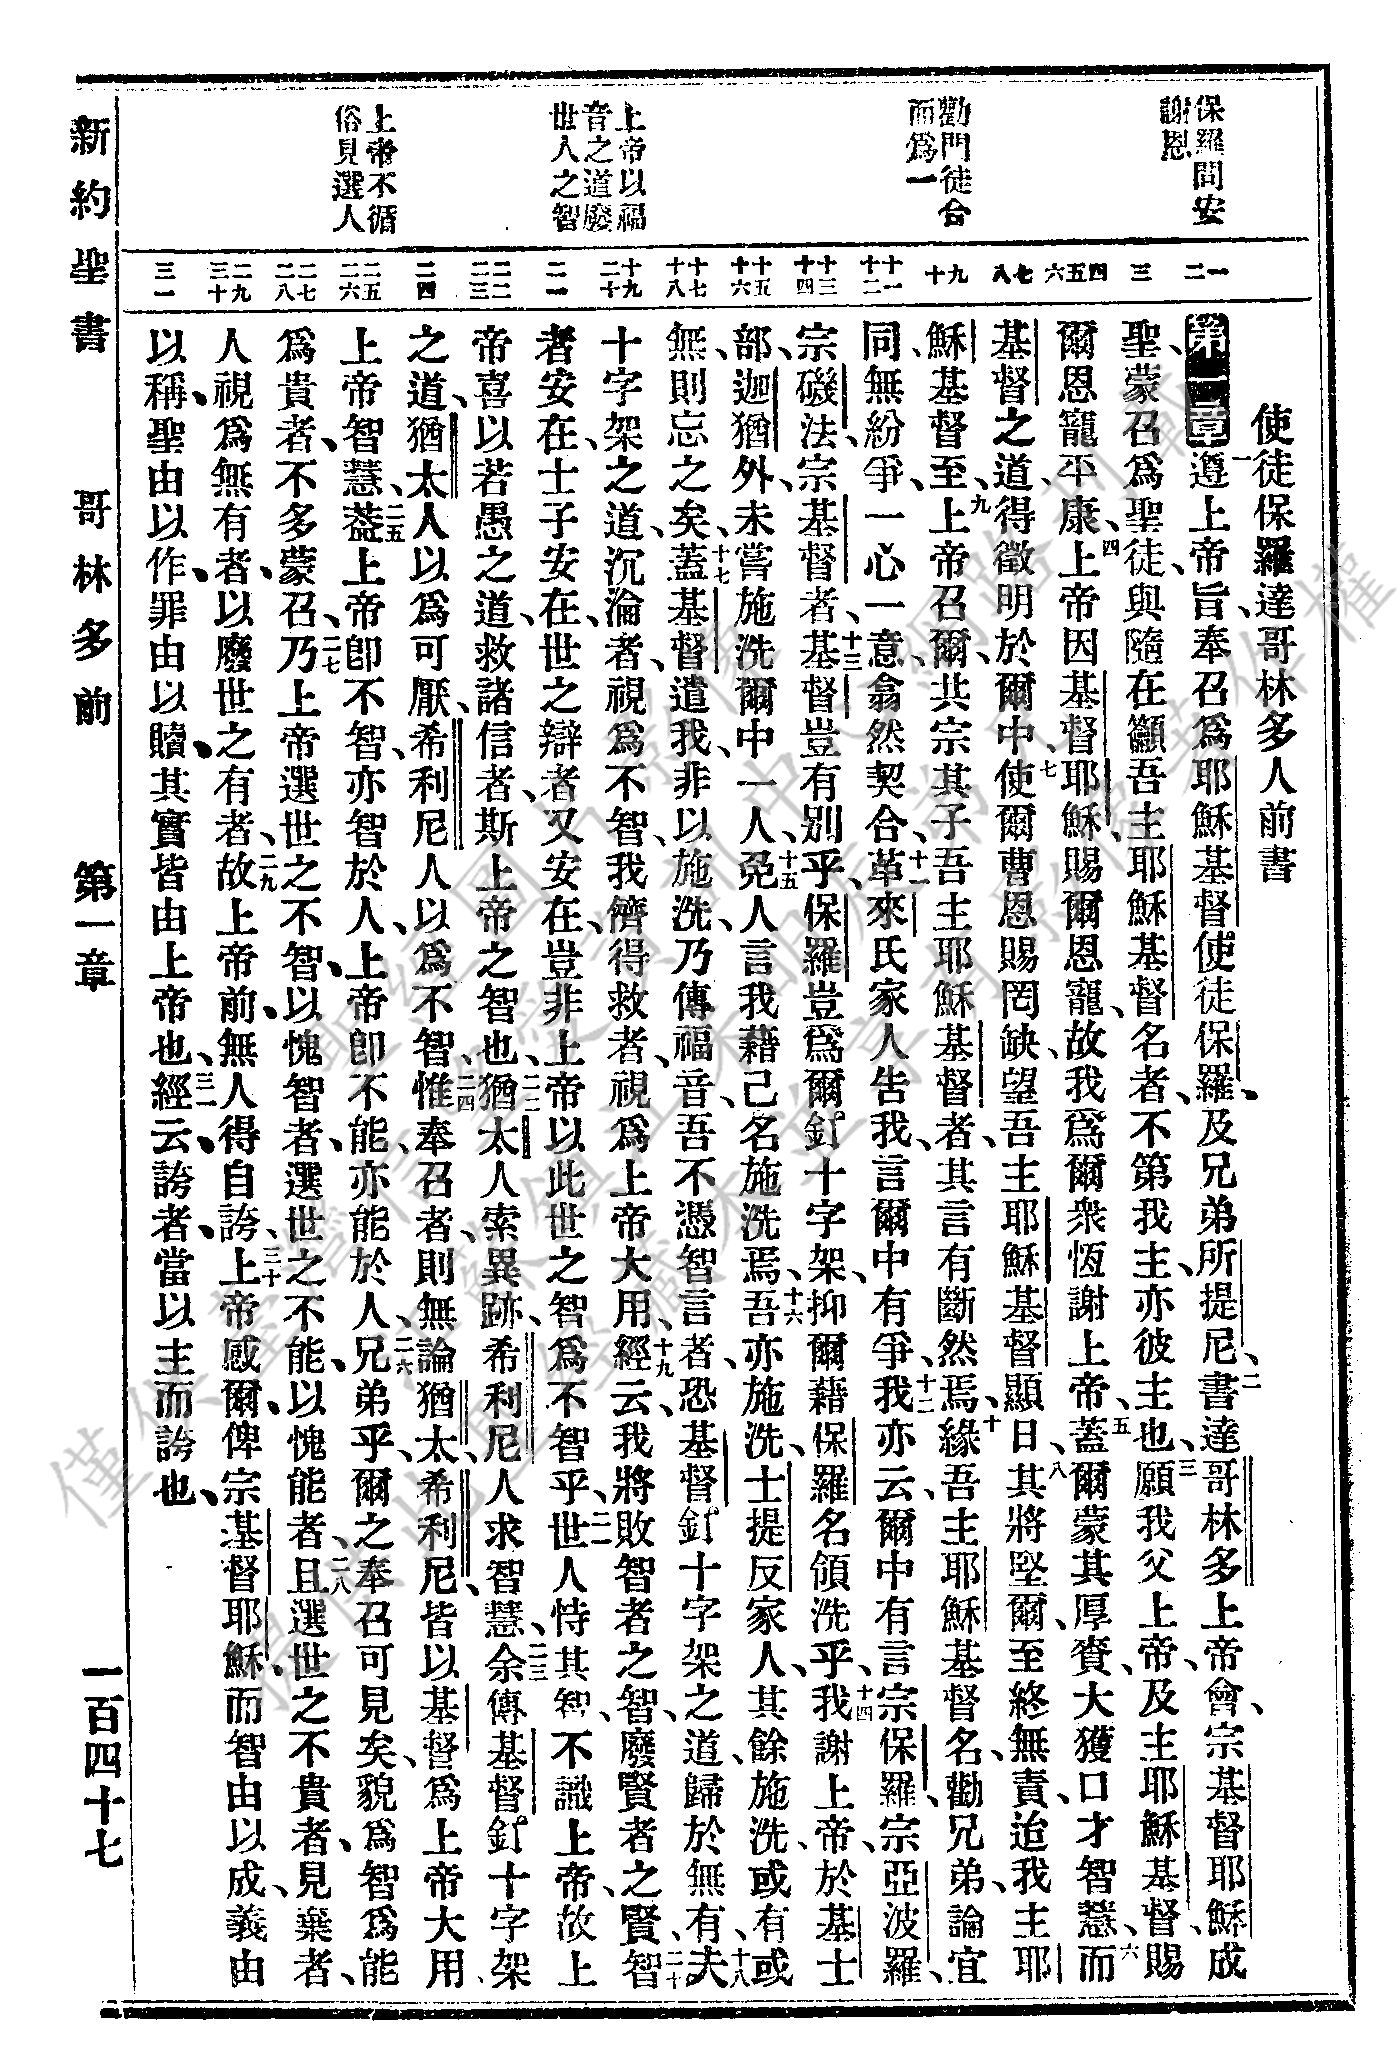 新約聖書 哥林多前 第一章 一百四十七
保羅問安
謝恩
勸門徒合
而爲一
上帝以福
音之道廢
世人之智
上帝不循
俗見選人
一 二 三 四 五 六 七 八 九 十 十一 十二 十三 十四 十五 十六 十七 十八 十九 二十 二一 二二 二三 二四 二五 二六 二七 二八 二九 三十 三一
使徒保羅達哥林多人前書
第一章 一遵上帝旨、奉召爲耶穌基督使徒保羅、及兄弟所提尼、二書達哥林多上帝會、宗基督耶穌成
聖、蒙召爲聖徒、與隨在籲吾主耶穌基督名者、不第我主、亦彼主也、三願我父上帝、及主耶穌基督、賜
爾恩寵平康、四上帝因基督耶穌、賜爾恩寵、故我爲爾衆恆謝上帝、五蓋爾蒙其厚賚、大獲口才智慧、六而
基督之道、得徵明於爾中、七使爾曹恩賜罔缺、望吾主耶穌基督顯日、八其將堅爾、至終無責、迨我主耶
穌基督至、九上帝召爾、共宗其子吾主耶穌基督者、其言有斷然焉、十緣吾主耶穌基督名、勸兄弟、論宜
同、無紛爭、一心一意、翕然契合、十一革來氏家人告我、言爾中有爭、十二我亦云、爾中有言宗保羅、宗亞波羅、
宗磯法、宗基督者、十三基督豈有別乎、保羅豈爲爾釘十字架、抑爾藉保羅名領洗乎、十四我謝上帝、於基士
部、迦猶外、未嘗施洗爾中一人、十五免人言我藉己名施洗焉、十六吾亦施洗士提反家人、其餘施洗、或有或
無、則忘之矣、十七蓋基督遣我、非以施洗、乃傳福音、吾不憑智言者、恐基督釘十字架之道、歸於無有、十八夫
十字架之道、沉淪者、視爲不智、我儕得救者、視爲上帝大用、十九經云、我將敗智者之智、廢賢者之賢、二十智
者安在、士子安在、世之辯者又安在、豈非上帝以此世之智爲不智乎、二一世人恃其智、不識上帝、故上
帝喜以若愚之道、救諸信者、斯上帝之智也、二二猶太人索異跡、希利尼人求智慧、二三余傳基督釘十字架
之道、猶太人以爲可厭、希利尼人以爲不智、二四惟奉召者、則無論猶太、希利尼、皆以基督爲上帝大用、
上帝智慧、二五葢上帝卽不智、亦智於人、上帝卽不能、亦能於人、二六兄弟乎、爾之奉召可見矣、貌爲智爲能
爲貴者、不多蒙召、二七乃上帝選世之不智、以愧智者、選世之不能、以愧能者、二八且選世之不貴者、見棄者、
人視爲無有者、以廢世之有者、二九故上帝前、無人得自誇、三十上帝感爾、俾宗基督耶穌、而智由以成、義由
以稱、聖由以作、罪由以贖、其實皆由上帝也、三一經云、誇者、當以主而誇也、